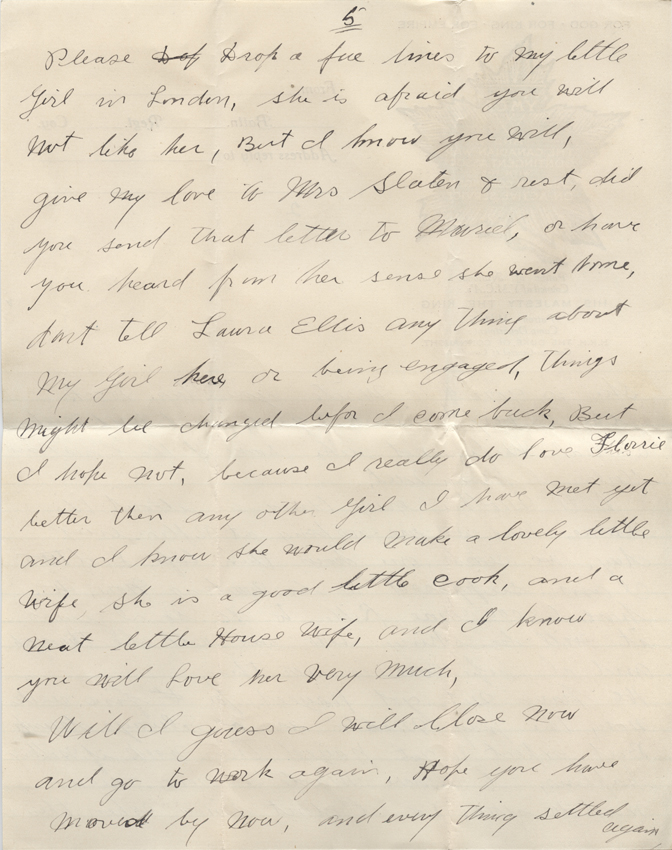 5
Please Dof Drop a fue lines to my little
Girl in London, she is afraid you will
Not like her, But I know you will,
give my love to Mrs Slaten & rest, did
you send that letter to Muriel, or have
you heard from her sense she went home,
dont tell Laura Ellis any thing about
My Girl here or being engaged, things
might be changed befor I come back, But
I hope not, because I really do love Florrie
better then any other Girl I have met yet
and I know she would make a lovely little
Wife, she is a good little cook, and a
neat little House Wife, and I know
you will Love her very much,
Will I guess I will Close Now
and go to work again, Hope you have
moved by Now, and every thing settled
again